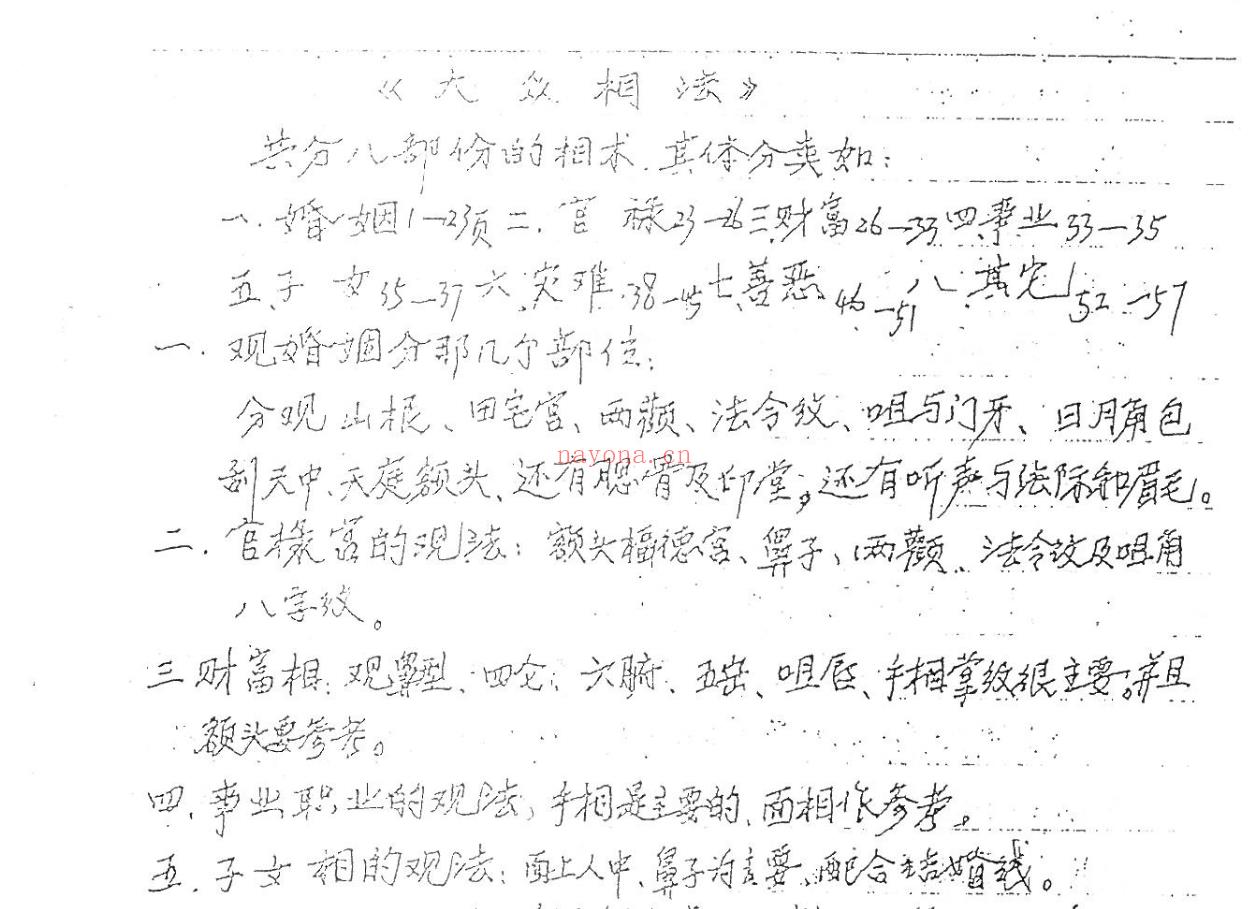 《大众相法》
共分八部份的相术.其体分类如:
一.婚姻1—23页二.官禄23—26三财富26—33四事业33—35
五子女35—37六灾难38—45七善恶46—51八.其它52—57
一.观婚姻分那几个部位:
分观山根、田宅宫、两颧、法令纹、咀与门牙、日月角包
刮天中、天庭额头、还有腮骨及印堂,还有听声与法际和眉毛。
nayona.cn
二.官禄宫的观法:额头福德宫、鼻子、两颧、法令纹及咀角
八字纹。
三财富相:观鼻型、四仑、六腑、五岳、咀唇、手相掌纹很主要。并且
额头要参考。
四.事业职业的观法,手相是主要的、面相作参考。
五.子女相的观法:面上人中、鼻子为主要、配合结婚线。